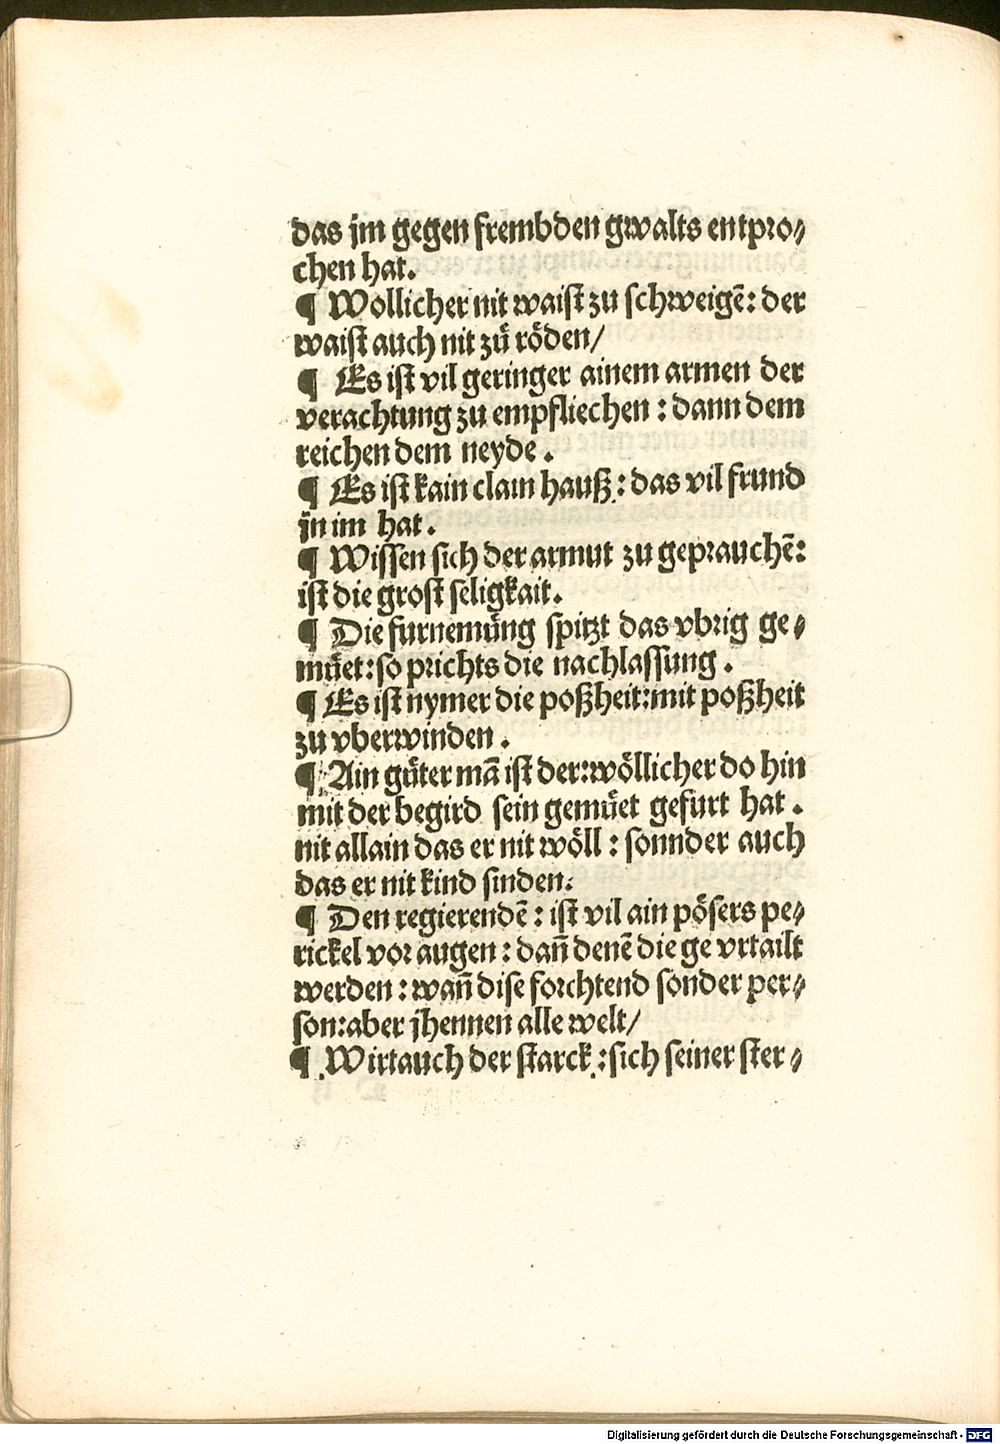 das jm gegen frembden gwalts entpro⸗
chen hat.
¶ Wollicher nit waist zu schweigē: der
waist auch nit zů röden/
¶ Es ist vil geringer ainem armen der
verachtung zu empfliechen : dann dem
reichen dem neyde .
¶ Es ist kain clain hauß : das vil frund
jn im hat .
¶ Wissen sich der armut zu geprauchē:
ist die grost seligkait.
¶ Die furnemůng spitzt das vbrig ge⸗
můet: so prichts die nachlassung .
¶ Es ist nymer die poßheit: mit poßheit
zu vberwinden .
¶ Ain gůter mā ist der: wöllicher do hin
mit der begird sein gemůet gefurt hat .
nit allain das er nit wöll : sonnder auch
das er nit kind sinden:
¶ Den regierendē : ist vil ain pösers pe⸗
rickel vor augen : dañ denē die ge vrtailt
werden : wañ dise forchtend sonder per⸗
son: aber jhennen alle welt/
¶ Wirt auch der starck : sich seiner ster⸗
Digitalisierung gefördert durch die Deutsche Forschungsgemeinschaft - DFG